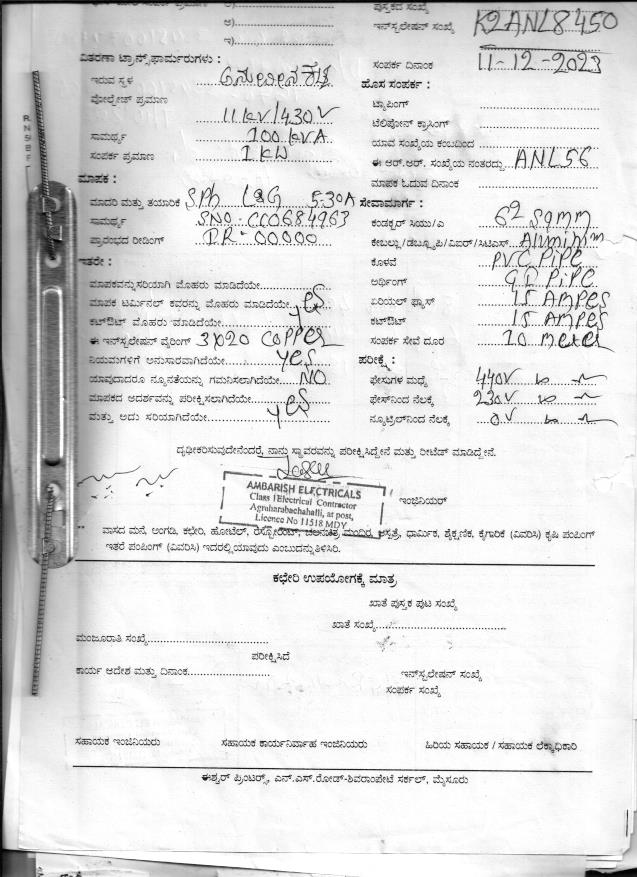 ಪುಸ್ತಕದ ಸಂಖ್ಯೆ
ಅ)
ಇನ್‌ಸ್ಟಲೇಷನ್ ಸಂಖ್ಯೆ K2ANL8450
ಇ)
ವಿತರಣಾ ಟ್ರಾನ್ಸ್‌ಫಾರ್ಮರುಗಳು :
ಸಂಪರ್ಕ ದಿನಾಂಕ 11-12-2023
ಇರುವ ಸ್ಥಳ
ಹೊಸ ಸಂಪರ್ಕ :
ವೋಲ್ಟೇಜ್ ಪ್ರಮಾಣ 11kv/430V
ಟ್ಯಾಪಿಂಗ್
ಟೆಲಿಫೋನ್ ಕ್ರಾಸಿಂಗ್
ಸಾಮರ್ಥ್ಯ 100 kVA
ಯಾವ ಸಂಖ್ಯೆಯ ಕಂಬದಿಂದ
ಸಂಪರ್ಕ ಪ್ರಮಾಣ 1 KW
ಈ ಆರ್.ಆರ್. ಸಂಖ್ಯೆಯ ನಂತರದ್ದು ANL56
ಮಾಪಕ :
ಮಾಪಕ ಓದುವ ದಿನಾಂಕ
ಮಾದರಿ ಮತ್ತು ತಯಾರಿಕೆ S.Ph L&G 5-30A
ಸೇವಾಮಾರ್ಗ :
ಸಾಮರ್ಥ್ಯ SNO:CC0684963
ಕಂಡಕ್ಟರ್ ಸಿಯು/ಎ 6² Sqmm
ಪ್ರಾರಂಭದ ರೀಡಿಂಗ್ D.R-00000
ಕೇಬಲ್ಲು/ಡಬ್ಲ್ಯೂಪಿ/ವಿಐಆರ್/ಸಿಟಿಎಸ್
ಇತರೇ :
ಕೊಳವೆ PVC PiPe
ಮಾಪಕವನ್ನು ಸರಿಯಾಗಿ ಮೊಹರು ಮಾಡಿದೆಯೇ
ಅರ್ಥಿಂಗ್ GI PiPe
ಮಾಪಕ ಟರ್ಮಿನಲ್ ಕವರನ್ನು ಮೊಹರು ಮಾಡಿದೆಯೇ yes
ಏರಿಯಲ್ ಫ್ಯೂಸ್ 15 AmPes
ಕಟ್‌ಔಟ್ ಮೊಹರು ಮಾಡಿದೆಯೇ
ಕಟ್‌ಔಟ್ 15 AmPes
ಈ ಇನ್‌ಸ್ಟಲೇಷನ್ ವೈರಿಂಗ್ 3X20 COPPeR
ಸಂಪರ್ಕ ಸೇವೆ ದೂರ 20 meter
ನಿಯಮಗಳಿಗೆ ಅನುಸಾರವಾಗಿದೆಯೇ yes
ಪರೀಕ್ಷೆ :
ಯಾವುದಾದರೂ ನ್ಯೂನತೆಯನ್ನು ಗಮನಿಸಲಾಗಿದೆಯೇ NO
ಫೇಸುಗಳ ಮಧ್ಯೆ 440V
ಮಾಪಕದ ಆದರ್ಶವನ್ನು ಪರೀಕ್ಷಿಸಲಾಗಿದೆಯೇ
ಫೇಸ್‌ನಿಂದ ನೆಲಕ್ಕೆ 230V
ಮತ್ತು ಅದು ಸರಿಯಾಗಿದೆಯೇ yes
ನ್ಯೂಟ್ರಲ್‌ನಿಂದ ನೆಲಕ್ಕೆ 0V
ದೃಢೀಕರಿಸುವುದೇನೆಂದರೆ, ನಾನು ಸ್ಥಾವರವನ್ನು ಪರೀಕ್ಷಿಸಿದ್ದೇನೆ ಮತ್ತು ರೀಟೆಡ್ ಮಾಡಿದ್ದೇನೆ.
AMBARISH ELECTRICALS
Class I Electrical Contractor
Agraharabachahalli, at post,
Licence No 11518 MDY
ಇಂಜಿನಿಯರ್
** ವಾಸದ ಮನೆ, ಅಂಗಡಿ, ಕಛೇರಿ, ಹೋಟೆಲ್, ರೆಸ್ಟೋರೆಂಟ್, ಚಲನಚಿತ್ರ ಮಂದಿರ, ಆಸ್ಪತ್ರೆ, ಧಾರ್ಮಿಕ, ಶೈಕ್ಷಣಿಕ, ಕೈಗಾರಿಕೆ (ವಿವರಿಸಿ) ಕೃಷಿ ಪಂಪಿಂಗ್
ಇತರೆ ಪಂಪಿಂಗ್ (ವಿವರಿಸಿ) ಇದರಲ್ಲಿ ಯಾವುದು ಎಂಬುದನ್ನು ತಿಳಿಸಿರಿ.
ಕಛೇರಿ ಉಪಯೋಗಕ್ಕೆ ಮಾತ್ರ
ಖಾತೆ ಪುಸ್ತಕ ಪುಟ ಸಂಖ್ಯೆ
ಖಾತೆ ಸಂಖ್ಯೆ
ಮಂಜೂರಾತಿ ಸಂಖ್ಯೆ
ಪರೀಕ್ಷಿಸಿದೆ
ಕಾರ್ಯ ಆದೇಶ ಮತ್ತು ದಿನಾಂಕ
ಇನ್‌ಸ್ಟಲೇಷನ್ ಸಂಖ್ಯೆ
ಸಂಪರ್ಕ ಸಂಖ್ಯೆ
ಸಹಾಯಕ ಇಂಜಿನಿಯರು ಸಹಾಯಕ ಕಾರ್ಯನಿರ್ವಾಹ ಇಂಜಿನಿಯರು ಹಿರಿಯ ಸಹಾಯಕ / ಸಹಾಯಕ ಲೆಕ್ಕಾಧಿಕಾರಿ
ಈಶ್ವರ್ ಪ್ರಿಂಟರ್ಸ್, ಎನ್.ಎಸ್.ರೋಡ್-ಶಿವರಾಂಪೇಟೆ ಸರ್ಕಲ್, ಮೈಸೂರು